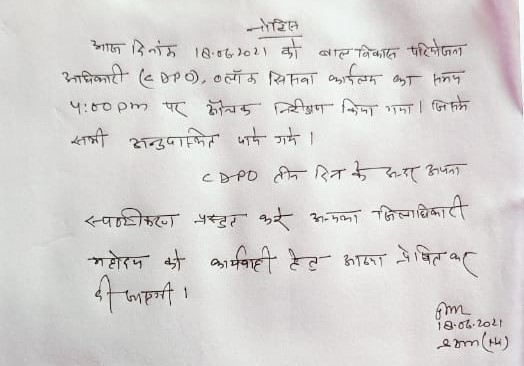 नोटिस
आज दिनांक 18.06.2021 को बाल विकास परियोजना
अधिकारी (CDPO), ब्लॉक सिसवा कार्यालय का समय
4:00 pm पर औचक निरीक्षण किया गया। जिसमें
सभी अनुपस्थित पाये गये।
CDPO तीन दिन के अन्दर अपना
स्पष्टीकरण प्रस्तुत करें अन्यथा जिलाधिकारी
महोदय को कार्यवाही हेतु आख्या प्रेषित कर
दी जाएगी।
18.06.2021